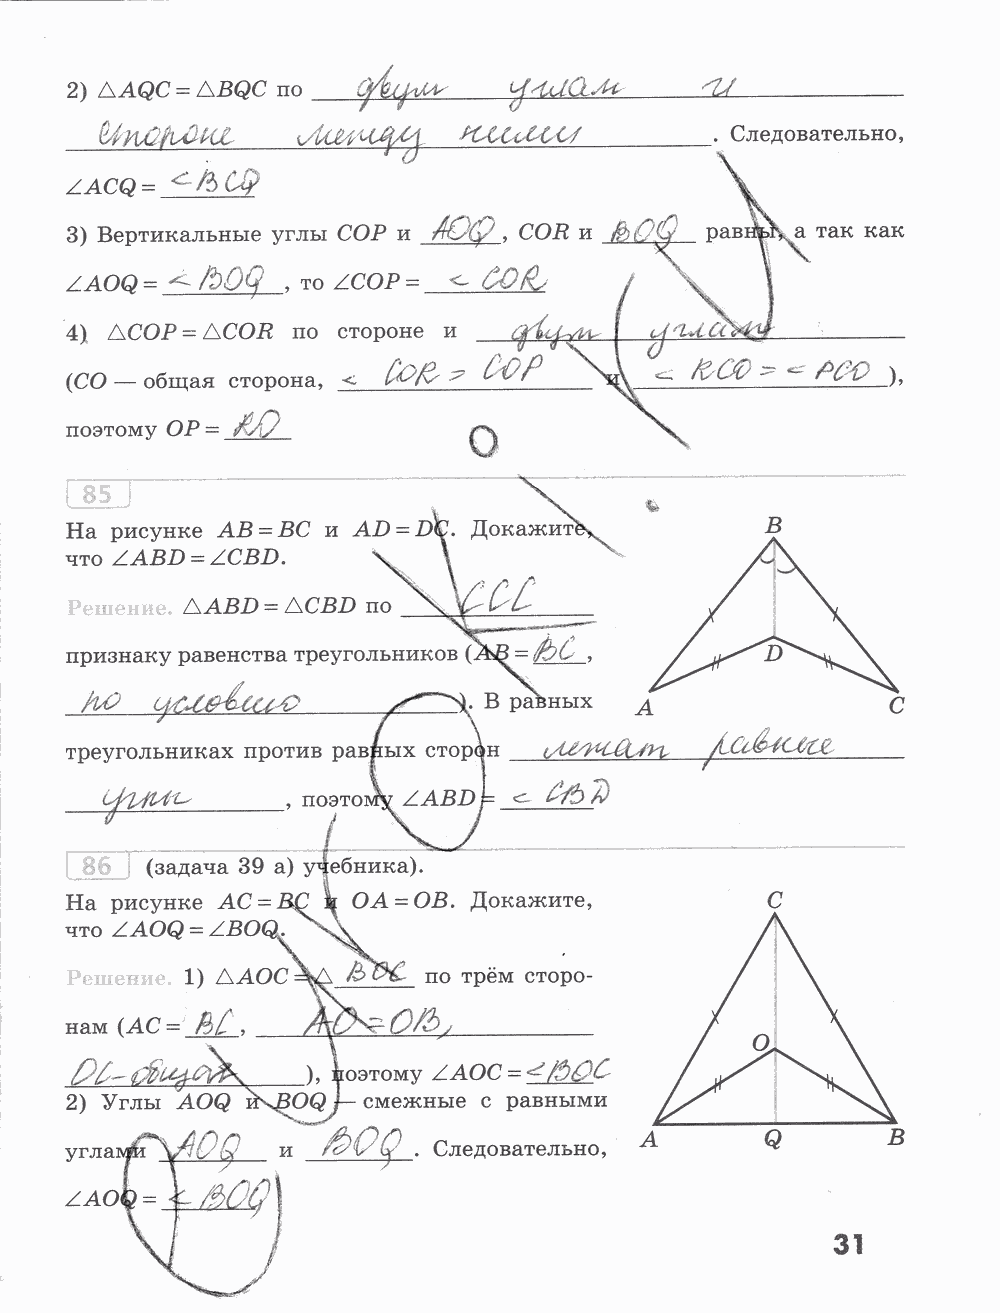 2) △AQC = △BQC по двум углам и
стороне между ними. Следовательно,
∠ACQ = <BCQ
3) Вертикальные углы COP и AOQ, COR и BOQ равны, а так как
∠AOQ = <BOQ, то ∠COP = <COR
4) △COP = △COR по стороне и двум углам
(CO — общая сторона, < COR = COP и < RCO = < PCO),
поэтому OP = RO
85
На рисунке AB = BC и AD = DC. Докажите,
что ∠ABD = ∠CBD.
Решение. △ABD = △CBD по CCC
признаку равенства треугольников (AB = BC,
по условию). В равных
треугольниках против равных сторон лежат равные
углы, поэтому ∠ABD = < CBD
B
D
A
C
86 (задача 39 а) учебника).
На рисунке AC = BC и OA = OB. Докажите,
что ∠AOQ = ∠BOQ.
Решение. 1) △AOC = △ BOC по трём сторо-
нам (AC = BC, AO = OB,
OC - общая), поэтому ∠AOC = <BOC
2) Углы AOQ и BOQ — смежные с равными
углами AOQ и BOQ. Следовательно,
∠AOQ = < BOQ
C
O
A
Q
B
31